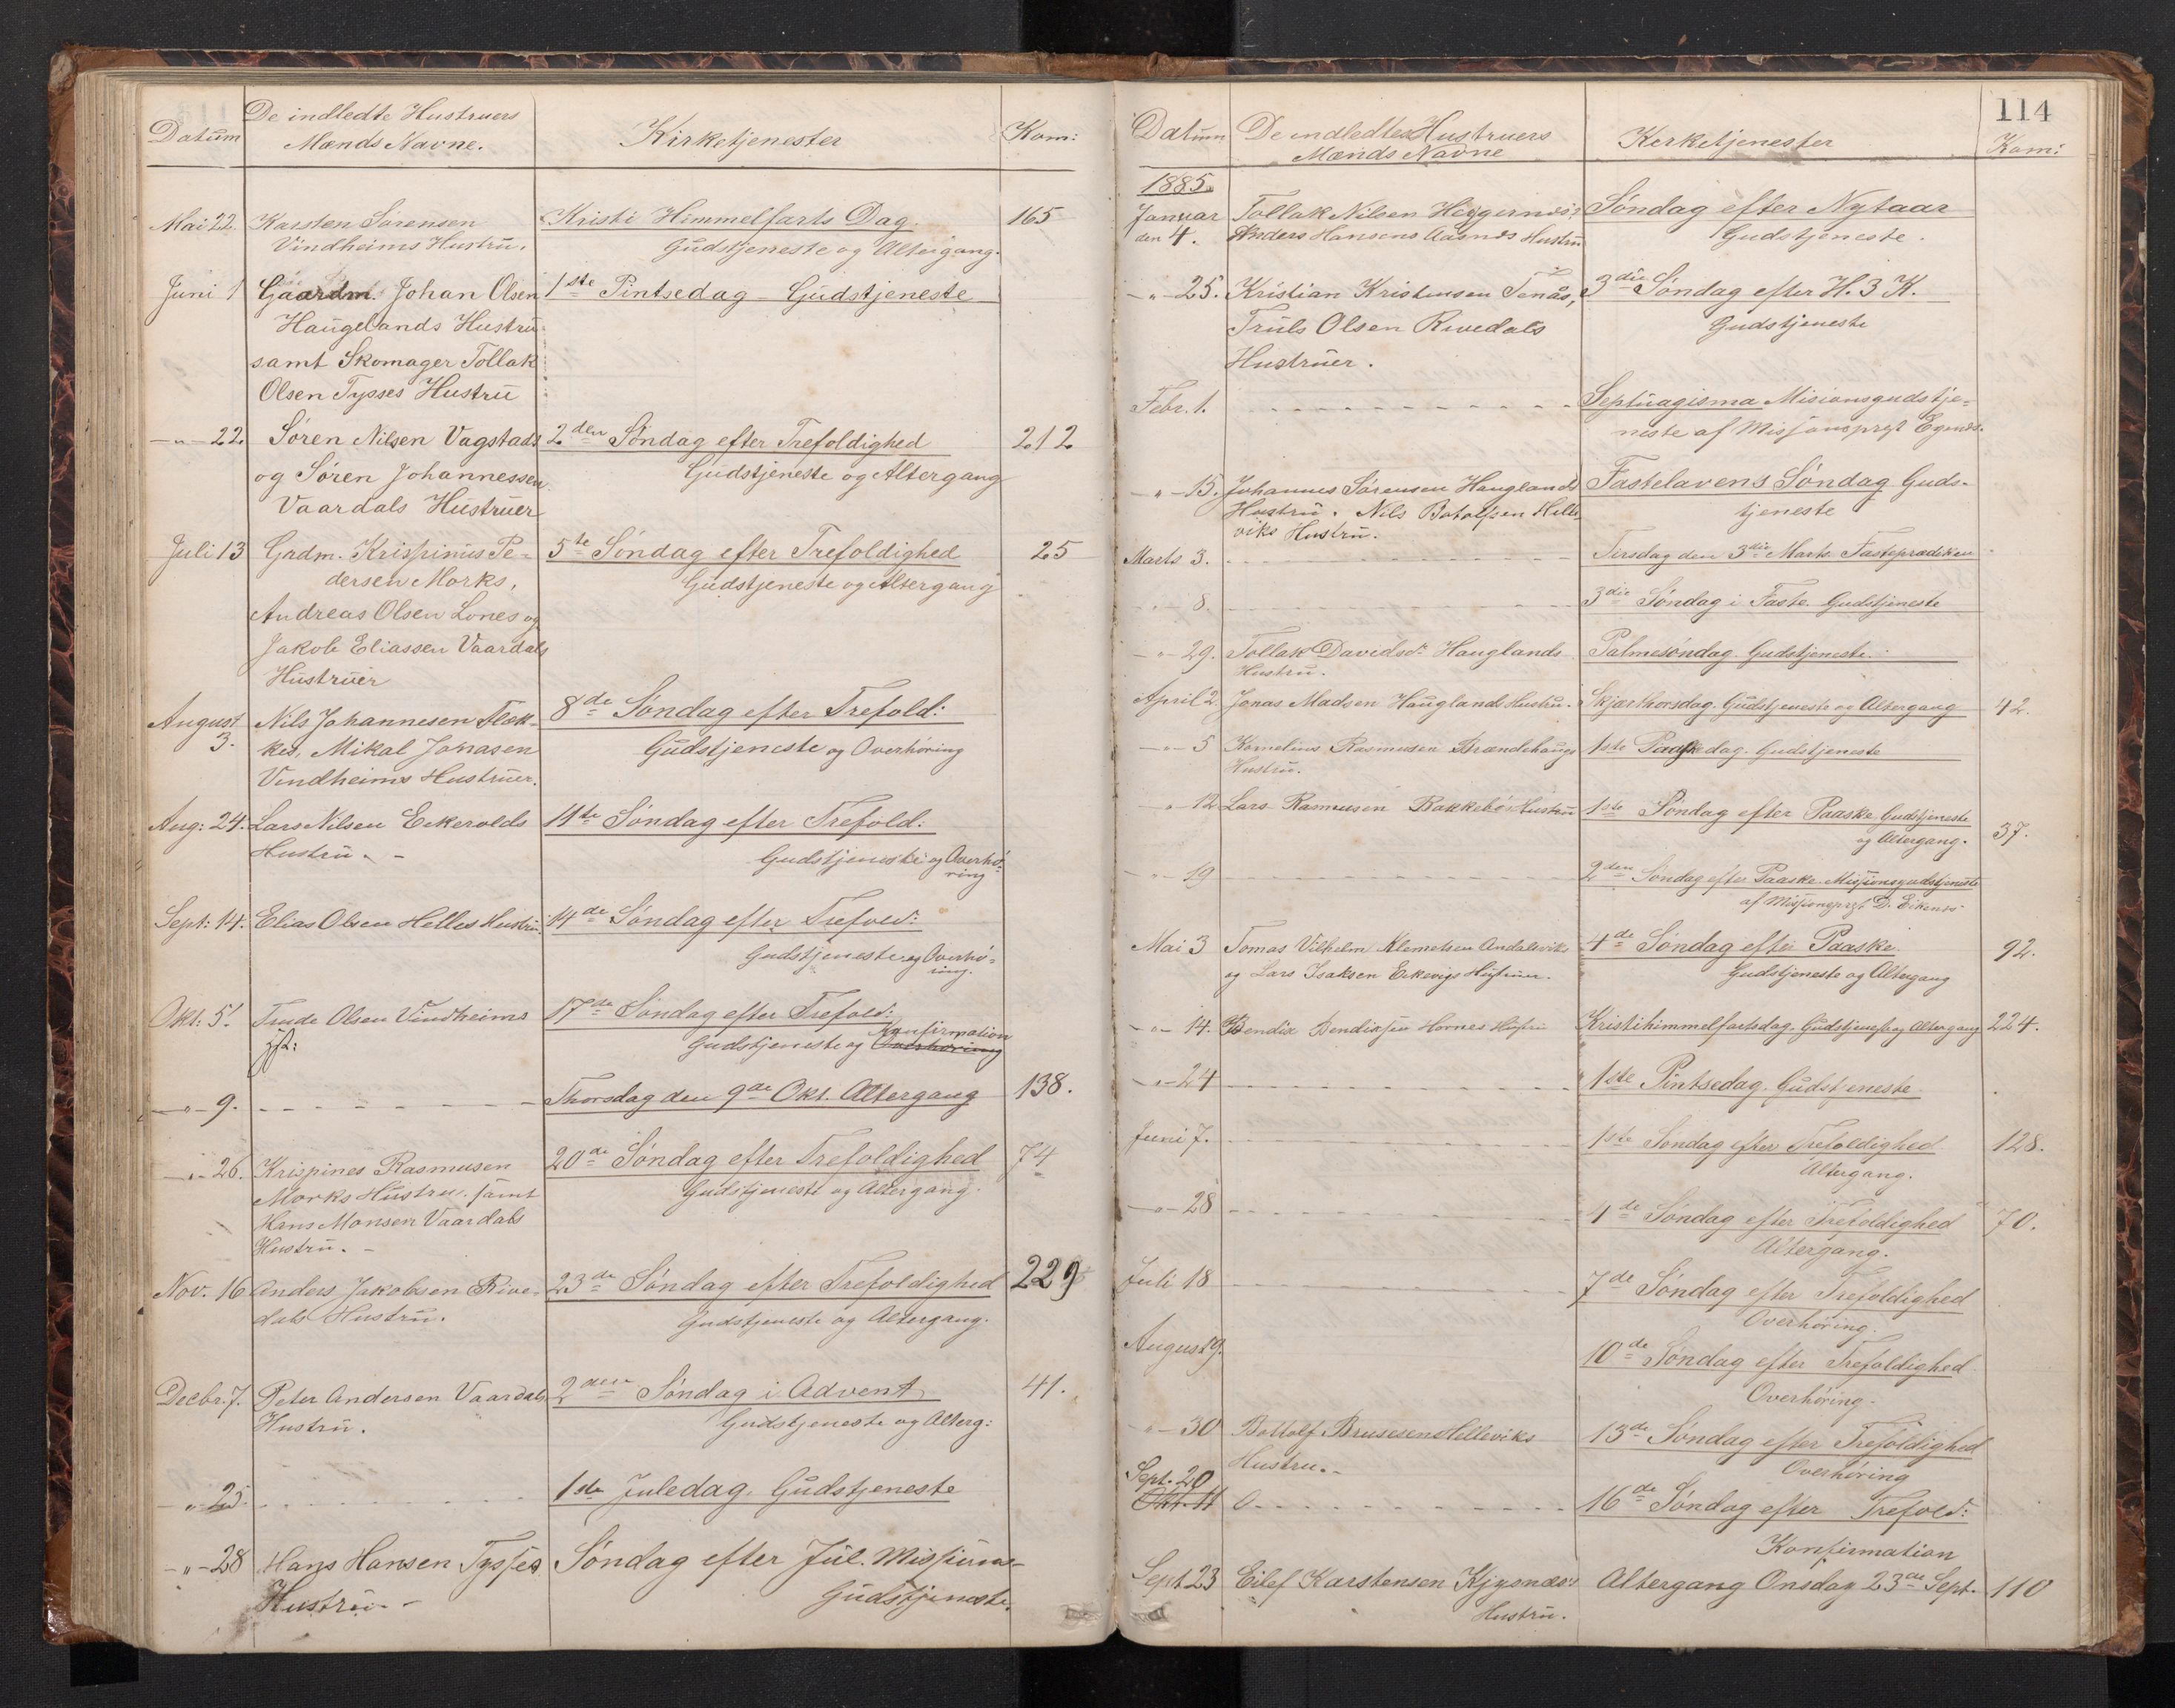 De indledte Hustruers
Datum
Mænds Navne.
Kirketjenester
Kom:
Mai 22. Karsten Sørensen Kristi Himmelfarts Dag. 165
Vindheims Hustru. Gudstjeneste og Altergang.
Juni 1 Gaardm. Johan Olsen 1ste Pintsedag - Gudstjeneste
Haugelands Hustru
samt Skomager Tollak
Olsen Tysses Hustru
-"-22 Søren Nilsen Vagstads 2den Søndag efter Trefoldighed 212
og Søren Johannessen Gudstjeneste og Altergang
Vaardals Hustruer
Juli 13 Grdm. Krispinus Pe- 5te Søndag efter Trefoldighed 25
dersen Morks, Gudstjeneste og Altergang
Andreas Olsen Lones og
Jakob Eliassen Vaardals
Hustruer
August Nils Johannesen Flek- 8de Søndag efter Trefold:
3. kes, Mikal Jonasen Gudstjeneste og Overhøring
Vindheims Hustruer.
Aug: 24. Lars Nilsen Eekerolds 11te Søndag efter Trefold:
Hustru. - Gudstjeneste og Overhø-
ring
Sept: 14. Elias Olsen Helles Hustru. 14de Søndag efter Trefold:
Gudstjeneste og Overhø-
ring.
Okt: 5. Trude Olsen Vindheims 17de Søndag efter Trefold:
Konfirmation
Gudstjeneste og Overhøring
-"-9. Thorsdag den 9de Okt. Altergang 138.
-"-26. Krispines Rasmusen 20de Søndag efter Trefoldighed 74
Morks Hustru. samt Gudstjeneste og Altergang.
Hans Monsen Vaardals
Hustru. -
Nov. 16 Anders Jakobsen Rive- 23de Søndag efter Trefoldighed 229
dals Hustru. Gudstjeneste og Altergang.
Decbr. 7. Peter Andersen Vaardals 2den Søndag i Advent 41.
Hustru. Gudstjeneste og Alterg:
-"-25. 1ste Juledag. Gudstjeneste
-"-28 Hans Hansen Tysses Søndag efter Jul. Missions-
Hustru. - Gudstjeneste.
114
Datum De indledtes Hustruers
Mænds Navne
Kirketjenester
Kom:
1885.
Januar Tollak Nilsen Heggernæs, Søndag efter Nytaar
den 4. Anders Hansens Aasnæs Hustru Gudstjeneste.
-"-25. Kristian Kristensen Tenås, 3die Søndag efter H. 3 K.
Truls Olsen Rivedals Gudstjeneste
Hustruer.
Febr. 1. Septuagisma Misionsgudstje-
neste af Missionsprest Egenæs.
-"-15. Johannes Sørensen Hauglands Fastelavens Søndag Guds-
Hustru. Nils Botolfsen Hille- tjeneste
viks Hustru.
Marts 3. Tirsdag den 3die Marts. Fasteprædiken
-"-8. 3die Søndag i Faste. Gudstjeneste
-"-29. Tollak Davidsds Hauglands Palmesøndag. Gudstjeneste.
Hustru.
April 2. Jonas Madsen Hauglands Hustru. Skjærthorsdag. Gudstjeneste og Altergang 42.
-"-5 Kornelius Rasmusen Brændehaugs 1ste Paaskedag. Gudstjeneste
Hustru.
-"-12 Lars Rasmusen Bakkebøs Hustru 1ste Søndag efter Paaske. Gudstjeneste
og Altergang. 37.
-"-19 2den Søndag efter Paaske. Missionsgudstjeneste
af Missionsprst D. Eikenæs
Mai 3 Tomas Vilhelm Klemetsen Andalsviks 4de Søndag efter Paaske. 92.
og Lars Isaksen Eekevigs Hustruer. Gudstjeneste og Altergang
-"-14. Bendix Bendixsen Hornes Hustru Kristihimmelfartsdag. Gudstjenest og Altergang 224.
-"-24 1ste Pintsedag. Gudstjeneste
Juni 7. 1ste Søndag efter Trefoldighed 128.
Altergang.
-"-28 4de Søndag efter Trefoldighed 70.
Altergang.
Juli 18 7de Søndag efter Trefoldighed
Overhøring.
August 9. 10de Søndag efter Trefoldighed
Overhøring.
"-30 Bottolf Brusesen Hilleviks 13de Søndag efter Trefoldighed
Hustru. - Overhøring
Sept. 20
Okt. 11 0 16de Søndag efter Trefold:
Konfirmation
Sept 23 Eilef Karstensen Kjysnæs's Altergang Onsdag 23de Sept. 110
Hustru.